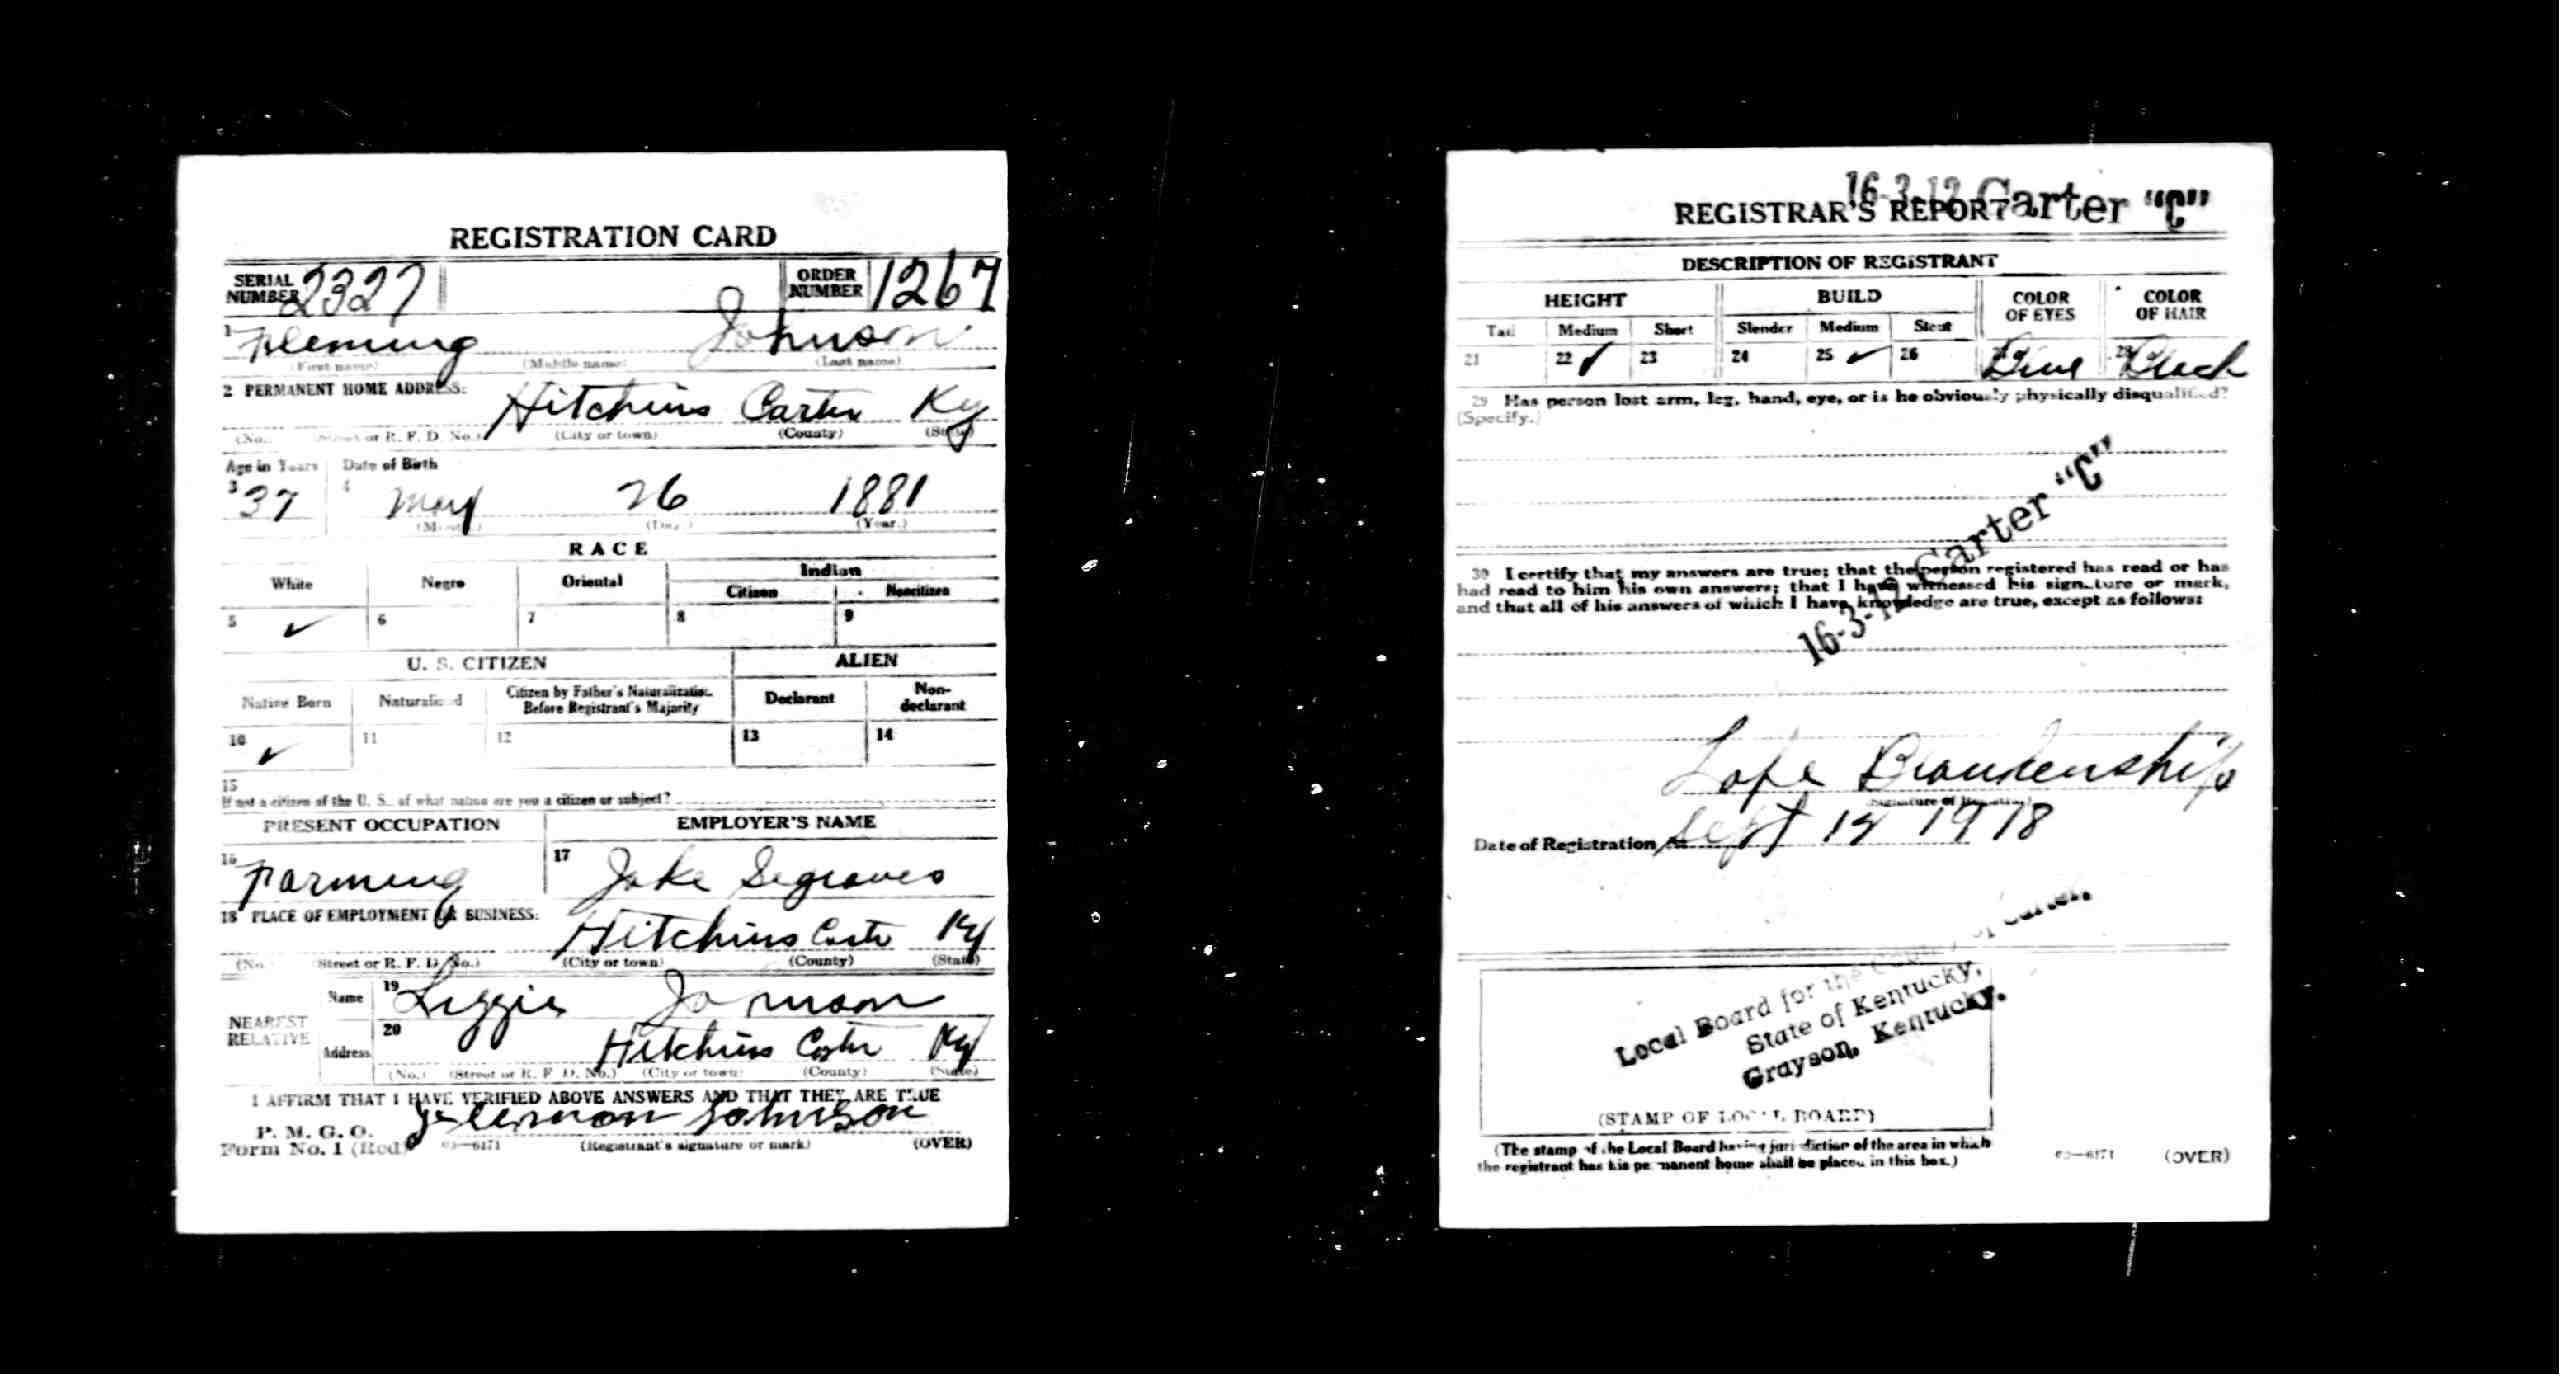 REGISTRATION CARD
SERIAL NUMBER 2327 ORDER NUMBER 1267
1 Fleming Johnson
(First name) (Middle name) (Last name)
2 PERMANENT HOME ADDRESS:
Hitchins Carter Ky
(No.) (Street or R. F. D. No.) (City or town) (County) (State)
Age in Years Date of Birth
3 37 4 May 26 1881
(Month.) (Day.) (Year.)
RACE
White Negro Oriental Indian
Citizen Noncitizen
5 ✓ 6 7 8 9
U. S. CITIZEN ALIEN
Native Born Naturalized Citizen by Father's Naturalization Before Registrant's Majority Declarant Non-declarant
10 ✓ 11 12 13 14
15
If not a citizen of the U. S., of what nation are you a citizen or subject?
PRESENT OCCUPATION EMPLOYER'S NAME
16 Farming 17 Jake Segraves
18 PLACE OF EMPLOYMENT OR BUSINESS:
Hitchins Carter Ky
(No.) (Street or R. F. D. No.) (City or town) (County) (State)
NEAREST RELATIVE
Name 19 Lizzie Johnson
Address 20 Hitchins Carter Ky
(No.) (Street or R. F. D. No.) (City or town) (County) (State)
I AFFIRM THAT I HAVE VERIFIED ABOVE ANSWERS AND THAT THEY ARE TRUE
P. M. G. O.
Form No. 1 (Red) 03—6171 Johnson
(Registrant's signature or mark) (OVER)
16-3-12 Carter "C"
REGISTRAR'S REPORT
DESCRIPTION OF REGISTRANT
HEIGHT BUILD COLOR OF EYES COLOR OF HAIR
Tall Medium Short Slender Medium Stout
21 22 ✓ 23 24 25 ✓ 26 27 Blue 28 Black
29 Has person lost arm, leg, hand, eye, or is he obviously physically disqualified?
(Specify.)
16-3-12 Carter "C"
30 I certify that my answers are true; that the person registered has read or has
had read to him his own answers; that I have witnessed his signature or mark,
and that all of his answers of which I have knowledge are true, except as follows:
(Signature of Registrar)
Date of Registration Sept 12 1918
Local Board for the County of Carter,
State of Kentucky,
Grayson, Kentucky.
(STAMP OF LOCAL BOARD)
(The stamp of the Local Board having jurisdiction of the area in which
the registrant has his permanent home shall be placed in this box.)
03—6171 (OVER)